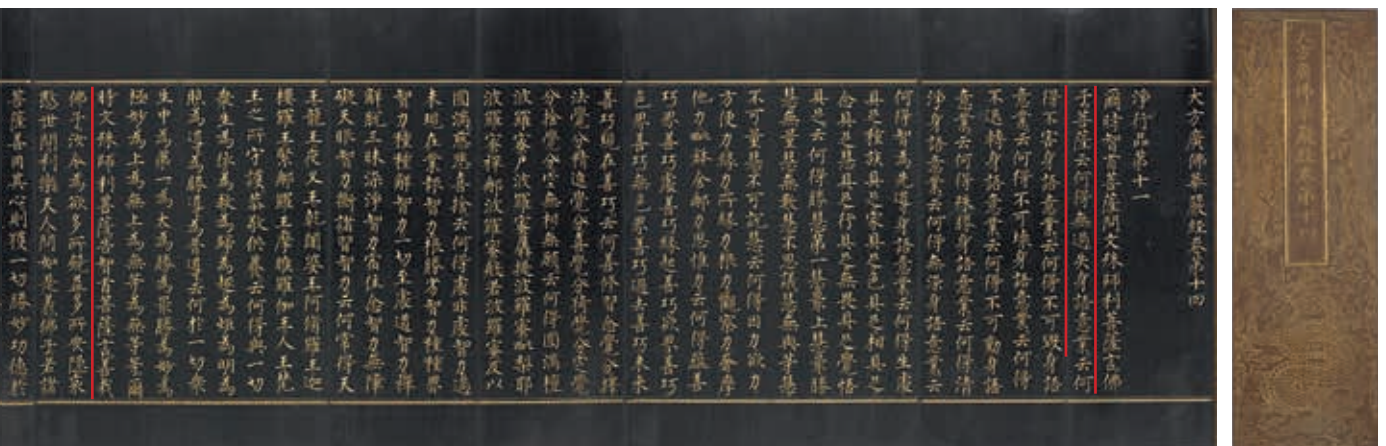 大方廣佛華嚴經卷第十四
淨行品第十一
爾時智首菩薩問文殊師利菩薩言佛
子菩薩云何得無過失身語意業云何
得不害身語意業云何得不可毀身語
意業云何得不可壞身語意業云何得
不退轉身語意業云何得不可動身語
意業云何得殊勝身語意業云何得清
淨身語意業云何得無染身語意業云
何得智為先導身語意業云何得生處
具足種族具足家具足色具足相具足
念具足慧具足行具足無畏具足覺悟
具足云何得勝慧第一慧最上慧最勝
慧無量慧無數慧不思議慧無與等慧
不可量慧不可說慧云何得因力欲力
方便力緣力所緣力根力觀察力奢摩
他力毗鉢舍那力思惟力云何得蘊善
巧界善巧處善巧緣起善巧欲界善巧
色界善巧無色界善巧過去善巧未來
善巧現在善巧云何善修習念覺分擇
法覺分精進覺分喜覺分猗覺分定覺
分捨覺分空無相無願云何得圓滿檀
波羅蜜尸波羅蜜羼提波羅蜜毗梨耶
波羅蜜禪那波羅蜜般若波羅蜜及以
圓滿慈悲喜捨云何得處非處智力過
未現在業報智力根勝劣智力種種界
智力種種解智力一切至處道智力禪
解脫三昧染淨智力宿住念智力無障
礙天眼智力斷諸習智力云何常得天
王龍王夜叉王乾闥婆王阿脩羅王迦
樓羅王緊那羅王摩睺羅伽王人王梵
王之所守護恭敬供養云何得與一切
眾生為依為救為歸為趣為炬為明為
照為導為勝導為普導云何於一切眾
生中為第一為大為勝為最勝為妙為
極妙為上為無上為無等為無等等爾
時文殊師利菩薩告智首菩薩言善哉
佛子汝今為欲多所饒益多所安隱哀
愍世間利樂天人問如是義佛子若諸
菩薩善用其心則獲一切勝妙功德於
大方廣佛華嚴經卷第十四